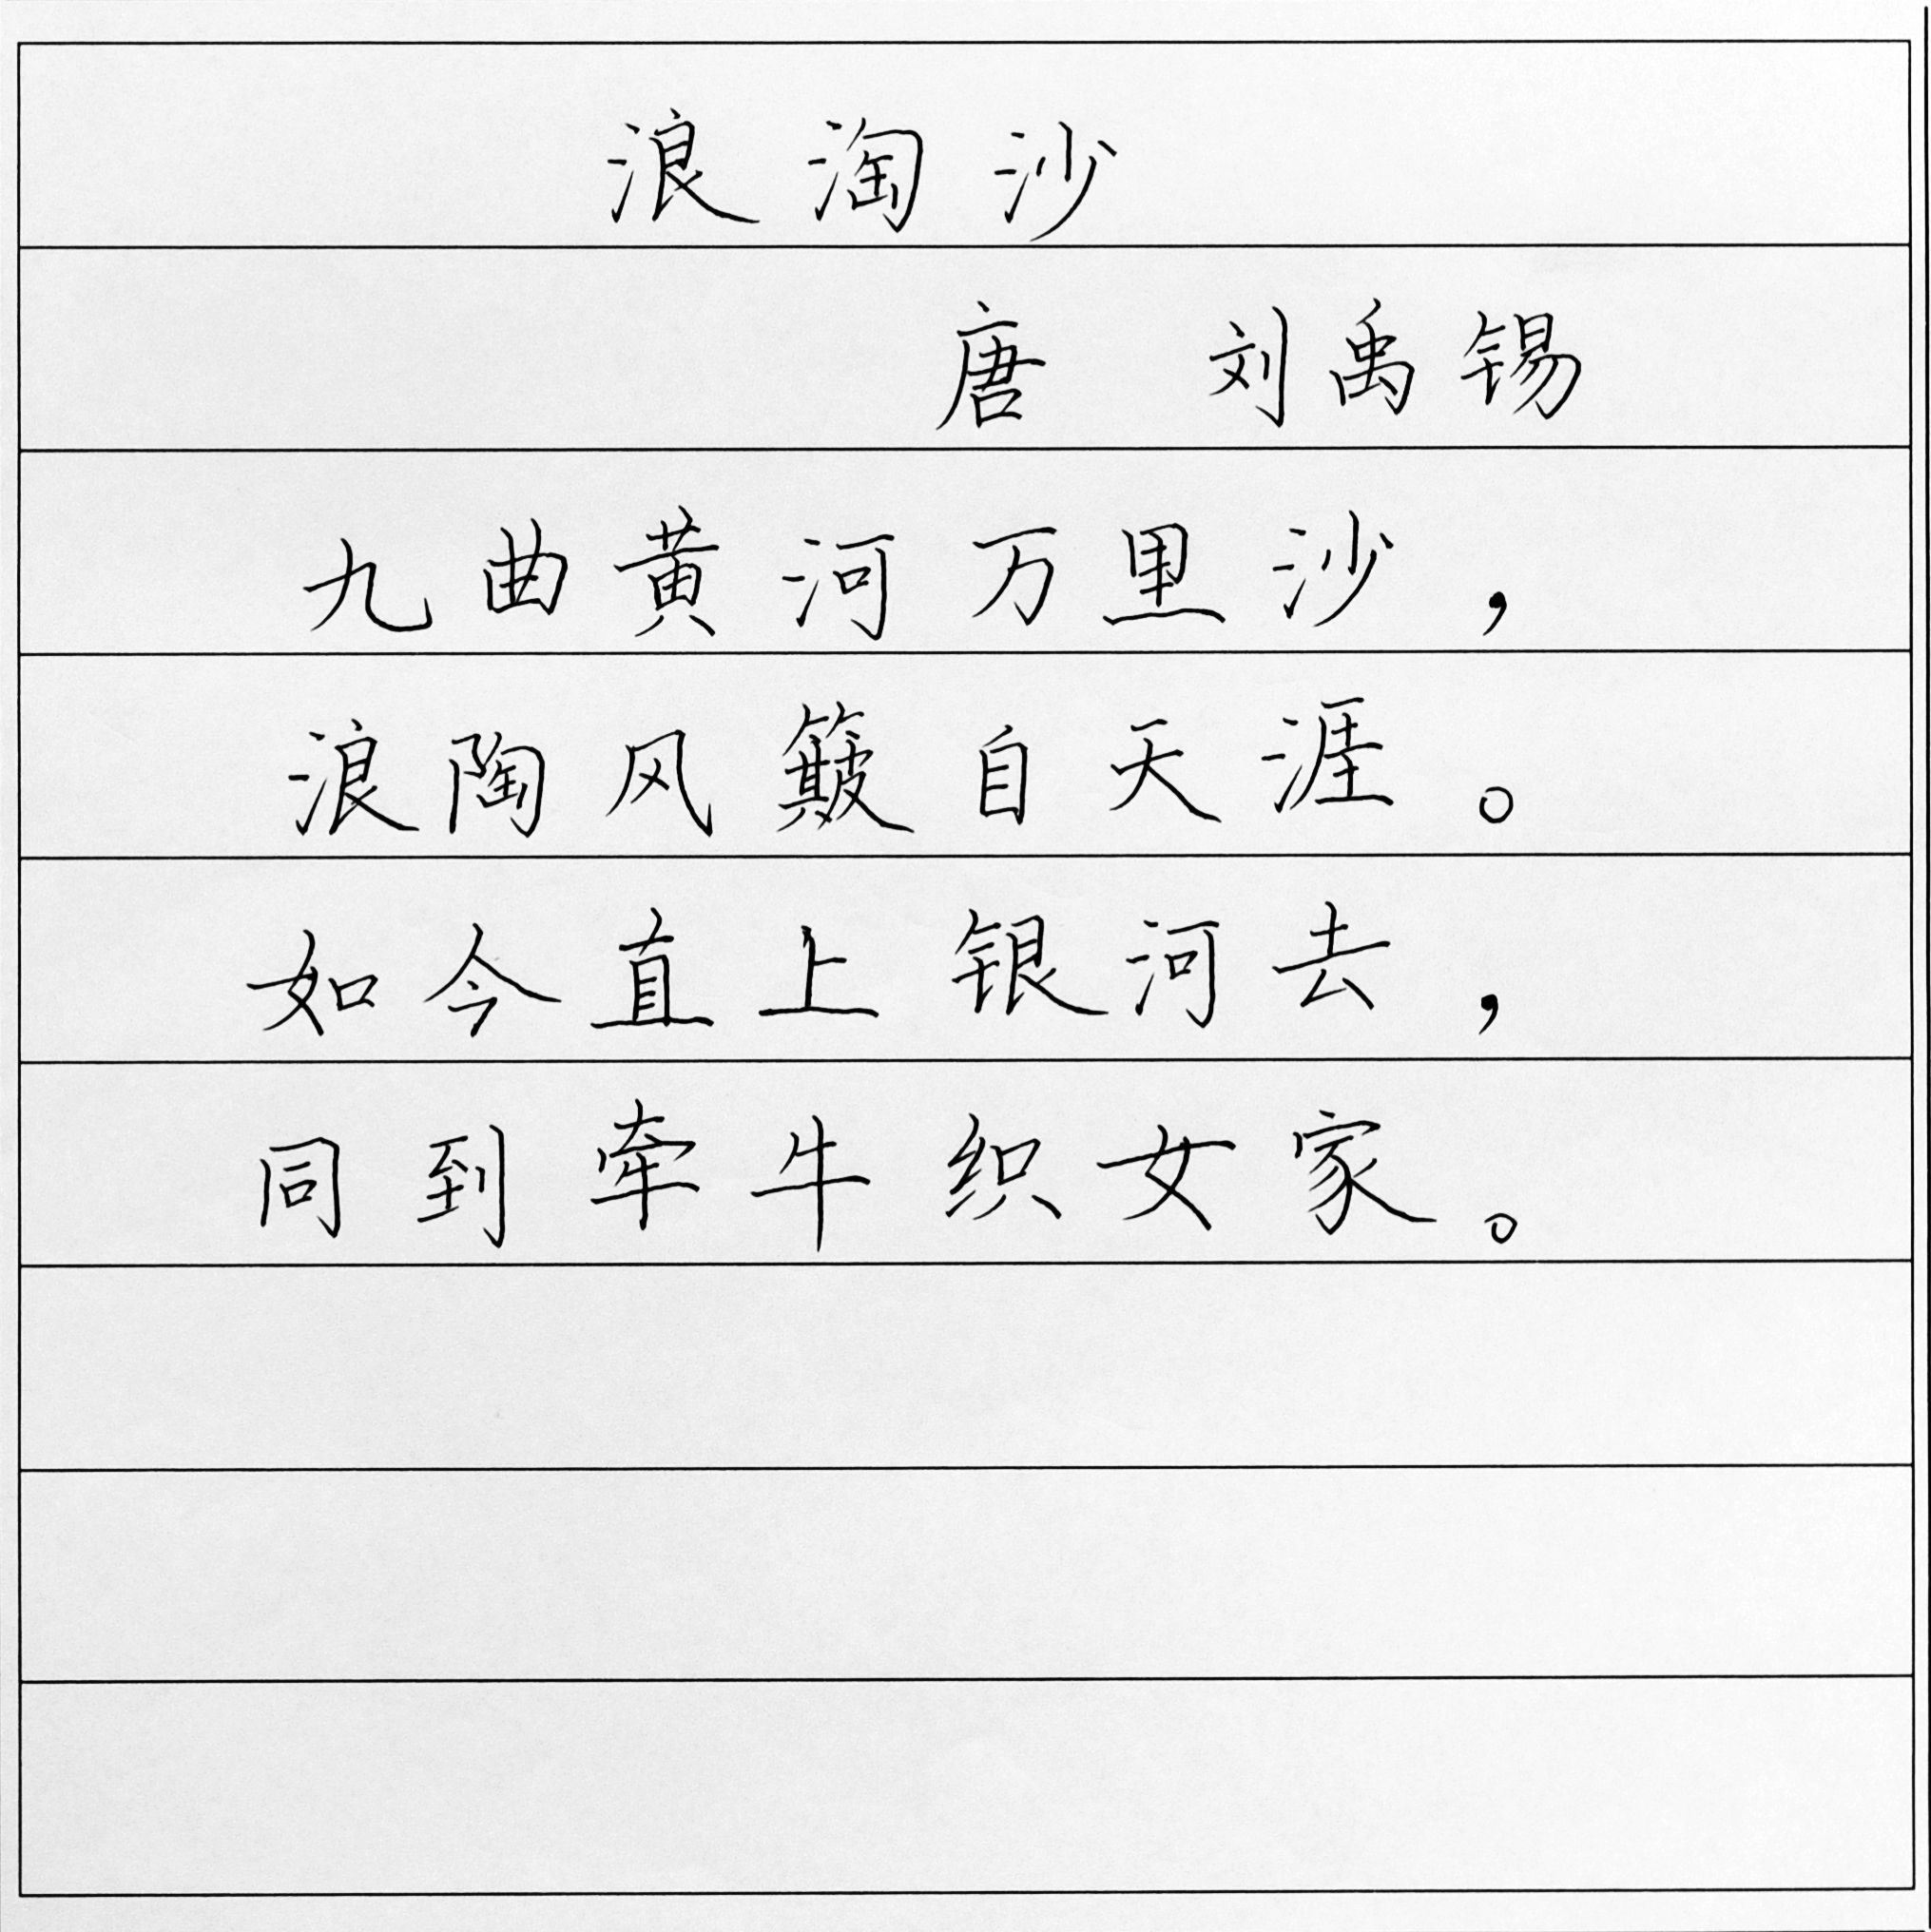 浪淘沙
唐 刘禹锡
九曲黄河万里沙，
浪陶风簸自天涯。
如今直上银河去，
同到牵牛织女家。